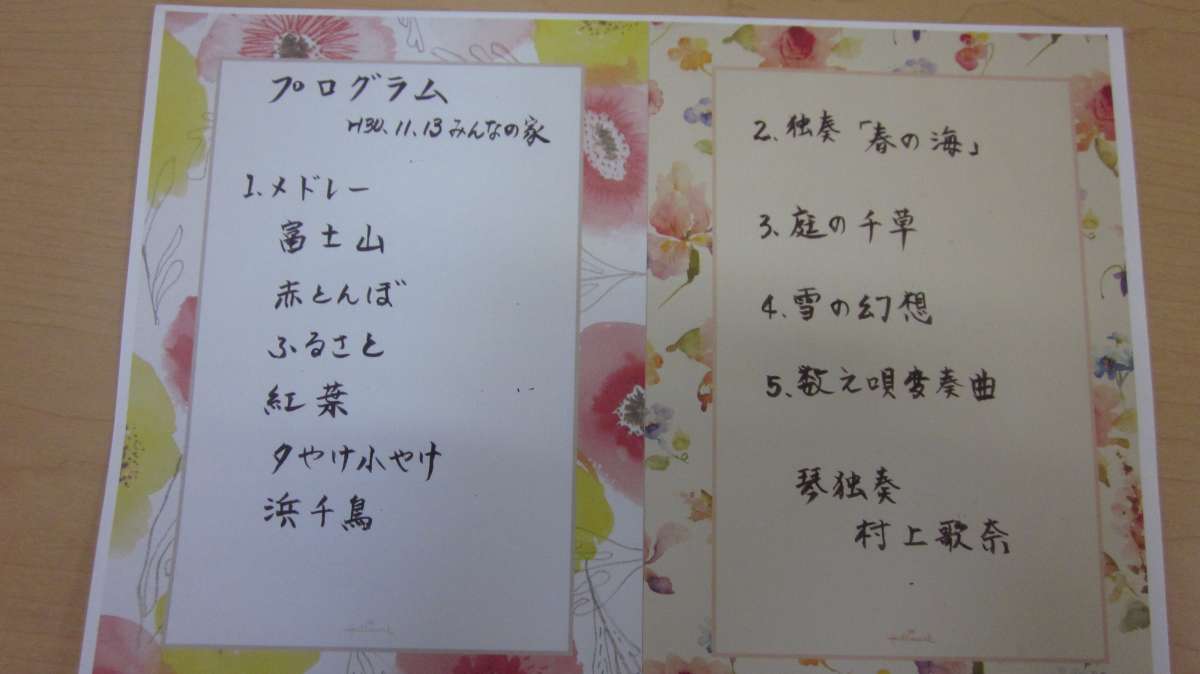 プログラム
H30.11.13 みんなの家
1.メドレー
富士山
赤とんぼ
ふるさと
紅葉
夕やけ小やけ
浜千鳥
2.独奏「春の海」
3.庭の千草
4.雪の幻想
5.数え唄変奏曲
琴独奏
村上歌奈
Hallmark
Hallmark